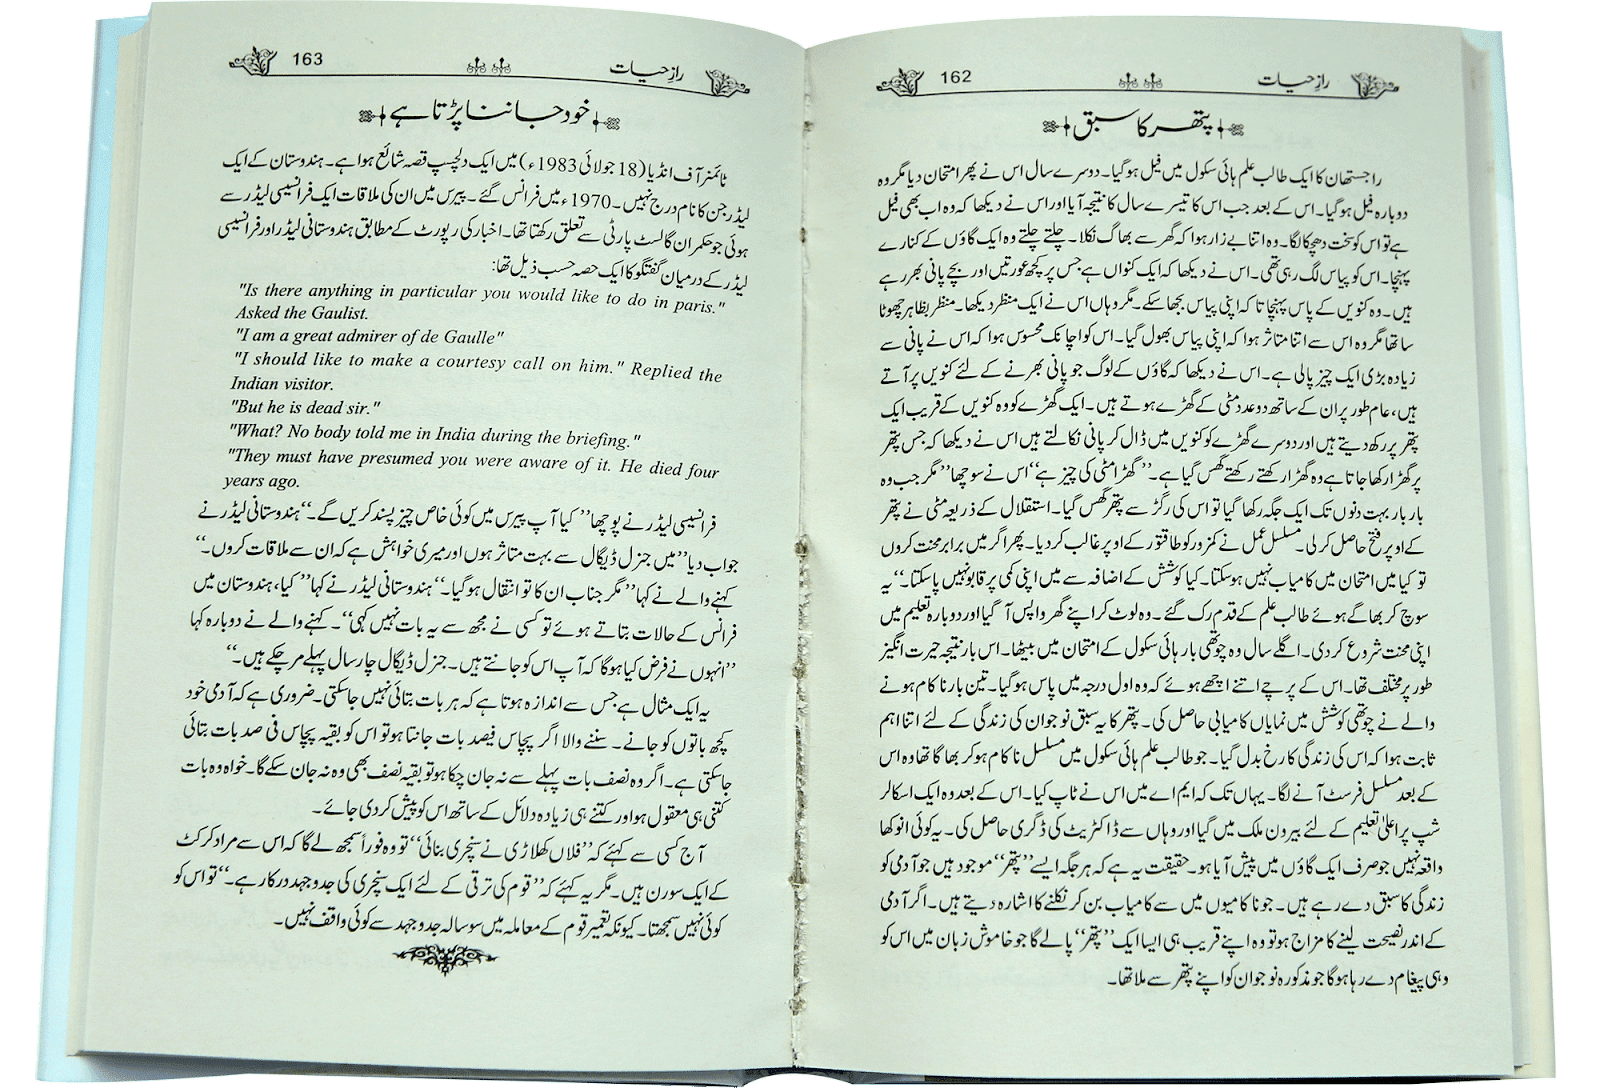 راز حیات 162
پتھر کا سبق
راجستھان کا ایک طالب علم ہائی سکول میں فیل ہوگیا۔ دوسرے سال اس نے پھر امتحان دیا مگر وہ
دوبارہ فیل ہوگیا۔ اس کے بعد جب اس کا تیسرے سال کا نتیجہ آیا اور اس نے دیکھا کہ وہ اب بھی فیل
ہے تو اس کو سخت دھچکا لگا۔ وہ اتنا بے زار ہوا کہ گھر سے بھاگ نکلا۔ چلتے چلتے وہ ایک گاؤں کے کنارے
پہنچا۔ اس کو پیاس لگ رہی تھی۔ اس نے دیکھا کہ ایک کنواں ہے جس پر کچھ عورتیں اور بچے پانی بھر رہے
ہیں۔ وہ کنویں کے پاس پہنچا تاکہ اپنی پیاس بجھا سکے۔ مگر وہاں اس نے ایک منظر دیکھا۔ منظر بظاہر چھوٹا
سا تھا مگر وہ اس سے اتنا متاثر ہوا کہ اپنی پیاس بھول گیا۔ اس کو اچانک محسوس ہوا کہ اس نے پانی سے
زیادہ بڑی ایک چیز پالی ہے۔ اس نے دیکھا کہ گاؤں کے لوگ جو پانی بھرنے کے لئے کنویں پر آتے
ہیں، عام طور پر ان کے ساتھ دو عدد مٹی کے گھڑے ہوتے ہیں۔ ایک گھڑے کو وہ کنویں کے قریب ایک
پتھر پر رکھ دیتے ہیں اور دوسرے گھڑے کو کنویں میں ڈال کر پانی نکالتے ہیں اس نے دیکھا کہ جس پتھر
پر گھڑا رکھا جاتا ہے وہ گھڑا رکھتے رکھتے گھس گیا ہے۔ ’’گھڑا مٹی کی چیز ہے‘‘ اس نے سوچا ’’مگر جب وہ
بار بار بہت دنوں تک ایک جگہ رکھا گیا تو اس کی رگڑ سے پتھر گھس گیا۔ استقلال کے ذریعہ مٹی نے پتھر
کے اوپر فتح حاصل کرلی۔ مسلسل عمل نے کمزور کو طاقتور کے اوپر غالب کردیا۔ پھر اگر میں برابر محنت کروں
تو کیا میں امتحان میں کامیاب نہیں ہوسکتا۔ کیا کوشش کے اضافہ سے میں اپنی کمی پر قابو نہیں پاسکتا۔‘‘ یہ
سوچ کر بھاگے ہوئے طالب علم کے قدم رک گئے۔ وہ لوٹ کر اپنے گھر واپس آگیا اور دوبارہ تعلیم میں
اپنی محنت شروع کردی۔ اگلے سال وہ چوتھی بار ہائی سکول کے امتحان میں بیٹھا۔ اس بار نتیجہ حیرت انگیز
طور پر مختلف تھا۔ اس کے پرچے اتنے اچھے ہوئے کہ وہ اول درجہ میں پاس ہوگیا۔ تین بار ناکام ہونے
والے نے چوتھی کوشش میں نمایاں کامیابی حاصل کی۔ پتھر کا یہ سبق نوجوان کی زندگی کے لئے اتنا اہم
ثابت ہوا کہ اس کی زندگی کا رخ بدل گیا۔ جو طالب علم ہائی سکول میں مسلسل ناکام ہوکر بھاگا تھا وہ اس
کے بعد مسلسل فرسٹ آنے لگا۔ یہاں تک کہ ایم اے میں اس نے ٹاپ کیا۔ اس کے بعد وہ ایک اسکالر
شپ پر اعلیٰ تعلیم کے لئے بیرون ملک میں گیا اور وہاں سے ڈاکٹریٹ کی ڈگری حاصل کی۔ یہ کوئی انوکھا
واقعہ نہیں جو صرف ایک گاؤں میں پیش آیا ہو۔ حقیقت یہ ہے کہ ہر جگہ ایسے ’’پتھر‘‘ موجود ہیں جو آدمی کو
زندگی کا سبق دے رہے ہیں۔ جو ناکامیوں میں سے کامیاب بن کر نکلنے کا اشارہ دیتے ہیں۔ اگر آدمی
کے اندر نصیحت لینے کا مزاج ہو تو وہ اپنے قریب ہی ایسا ایک ’’پتھر‘‘ پالے گا جو خاموش زبان میں اس کو
وہی پیغام دے رہا ہوگا جو مذکورہ نوجوان کو اپنے پتھر سے ملا تھا۔
راز حیات 163
خود جاننا پڑتا ہے
ٹائمز آف انڈیا (18 جولائی 1983ء) میں ایک دلچسپ قصہ شائع ہوا ہے۔ ہندوستان کے ایک
لیڈر جن کا نام درج نہیں۔ 1970ء میں فرانس گئے۔ پیرس میں ان کی ملاقات ایک فرانسیسی لیڈر سے
ہوئی جو حکمران گالسٹ پارٹی سے تعلق رکھتا تھا۔ اخبار کی رپورٹ کے مطابق ہندوستانی لیڈر اور فرانسیسی
لیڈر کے درمیان گفتگو کا ایک حصہ حسب ذیل تھا:
"Is there anything in particular you would like to do in paris."
Asked the Gaulist.
"I am a great admirer of de Gaulle"
"I should like to make a courtesy call on him." Replied the
Indian visitor.
"But he is dead sir."
"What? No body told me in India during the briefing."
"They must have presumed you were aware of it. He died four
years ago.
فرانسیسی لیڈر نے پوچھا ’’کیا آپ پیرس میں کوئی خاص چیز پسند کریں گے۔‘‘ ہندوستانی لیڈر نے
جواب دیا ’’میں جنرل ڈیگال سے بہت متاثر ہوں اور میری خواہش ہے کہ ان سے ملاقات کروں۔‘‘
کہنے والے نے کہا ’’مگر جناب ان کا تو انتقال ہوگیا۔‘‘ ہندوستانی لیڈر نے کہا ’’کیا، ہندوستان میں
فرانس کے حالات بتاتے ہوئے تو کسی نے مجھ سے یہ بات نہیں کہی‘‘۔ کہنے والے نے دوبارہ کہا
’’انہوں نے فرض کیا ہوگا کہ آپ اس کو جانتے ہیں۔ جنرل ڈیگال چار سال پہلے مرچکے ہیں۔‘‘
یہ ایک مثال ہے جس سے اندازہ ہوتا ہے کہ ہر بات بتائی نہیں جاسکتی۔ ضروری ہے کہ آدمی خود
کچھ باتوں کو جانے۔ سننے والا اگر پچاس فیصد بات جانتا ہو تو اس کو بقیہ پچاس فی صد بات بتائی
جاسکتی ہے۔ اگر وہ نصف بات پہلے سے نہ جان چکا ہو تو بقیہ نصف بھی وہ نہ جان سکے گا۔ خواہ وہ بات
کتنی ہی معقول ہو اور کتنے ہی زیادہ دلائل کے ساتھ اس کو پیش کردی جائے۔
آج کسی سے کہئے کہ ’’فلاں کھلاڑی نے سنچری بنائی‘‘ تو وہ فوراً سمجھ لے گا کہ اس سے مراد کرکٹ
کے ایک سورن ہیں۔ مگر یہ کہئے کہ ’’قوم کی ترقی کے لئے ایک سنچری کی جدوجہد درکار ہے۔‘‘ تو اس کو
کوئی نہیں سمجھتا۔ کیونکہ تعمیر قوم کے معاملہ میں سو سالہ جدوجہد سے کوئی واقف نہیں۔